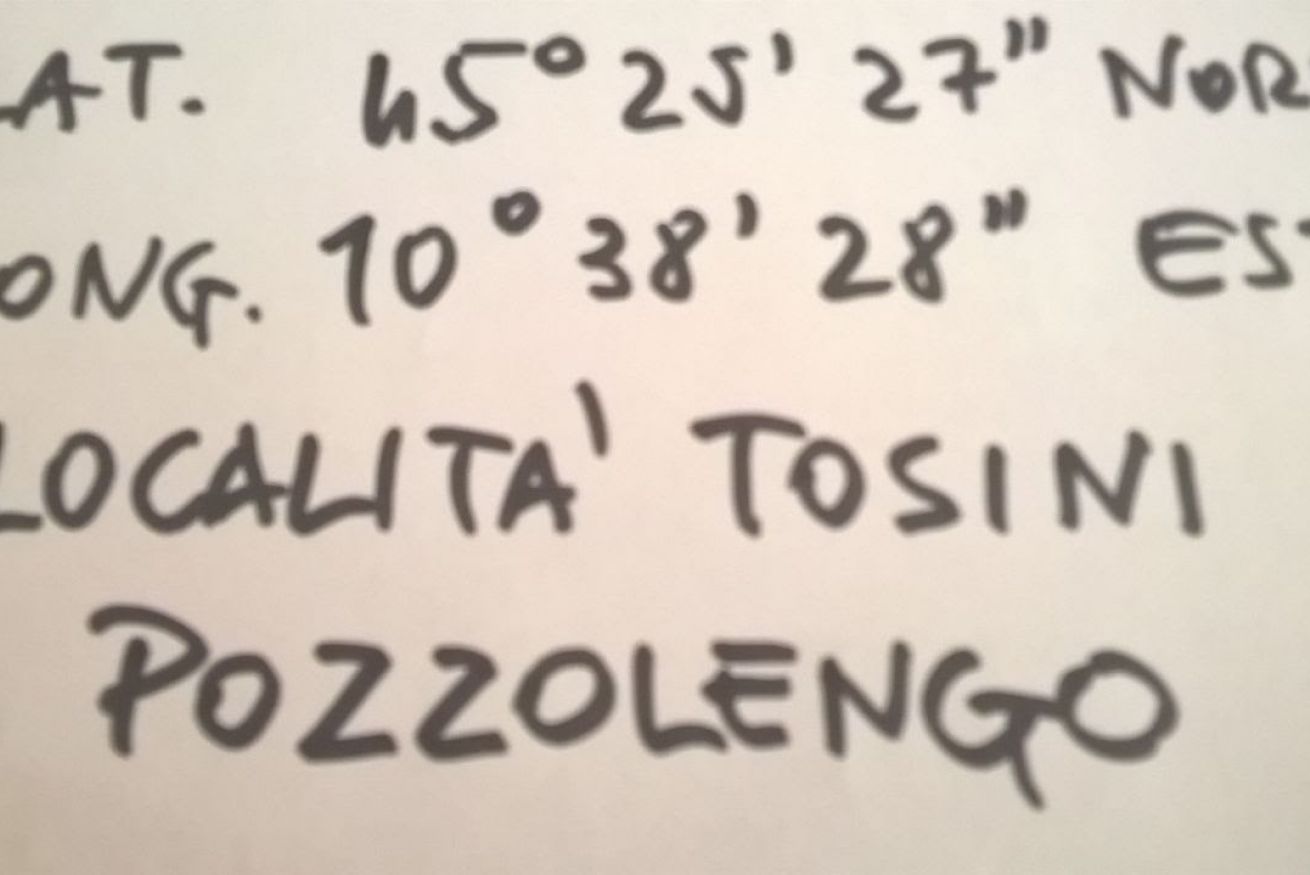 AT. 45° 25' 27" NOR
ONG. 10° 38' 28" EST
LOCALITA' TOSINI
POZZOLENGO